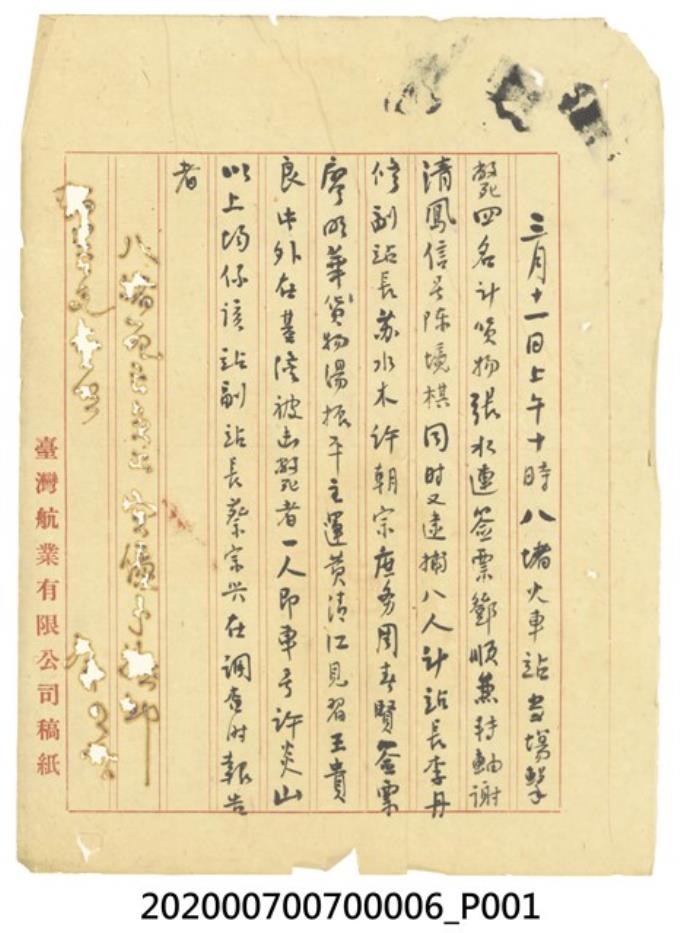 三月十一日上午十時八堵火車站當場擊
斃四名計貨物張水連簽票鄧順兼轉軸謝
清風信号陈境棋同時又逮捕八人計站長李丹
修副站長苏水木许朝宗庶务周春賢簽票
廖明華貨物湯振平主運黄清江見習王貴
良中外在基隆被击斃者一人即車号许炎山
以上均係该站副站長蔡宗兴在調查时報告
者
八堵
臺灣航業有限公司稿紙
202000700700006_P001